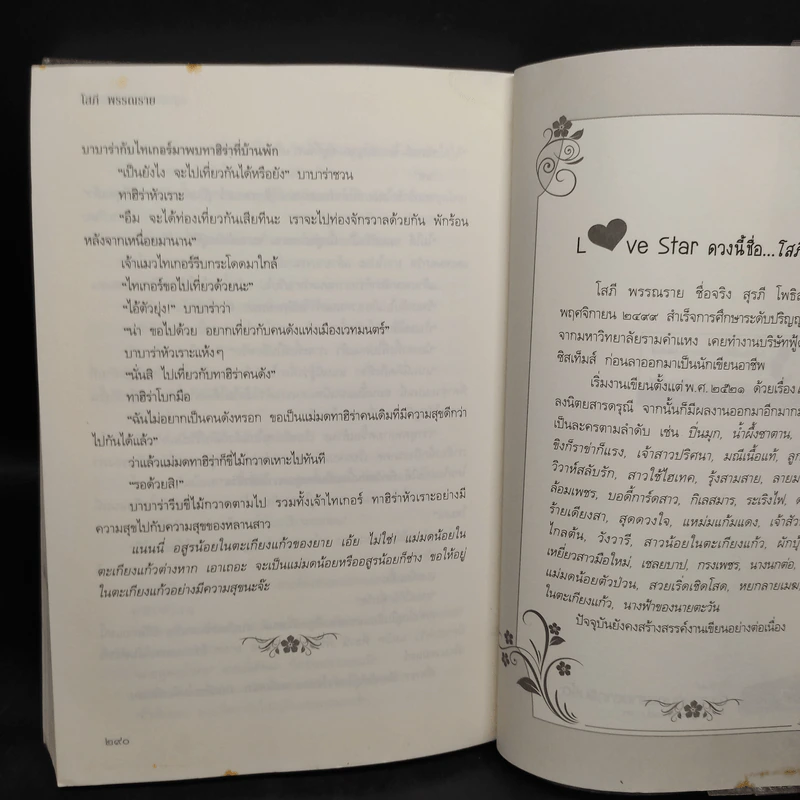 โสภี พรรณราย
บาบาร่ากับไทเกอร์มาพบทาฮิร่าที่บ้านพัก
“เป็นยังไง จะไปเที่ยวกันได้หรือยัง” บาบาร่าชวน
ทาฮิร่าหัวเราะ
“อืม จะได้ท่องเที่ยวกันเสียทีนะ เราจะไปท่องจักรวาลด้วยกัน พักร้อน
หลังจากเหนื่อยมานาน”
เจ้าแมวไทเกอร์รีบกระโดดมาใกล้
“ไทเกอร์ขอไปเที่ยวด้วยนะ”
“ไอ้ตัวยุ่ง!” บาบาร่าว่า
“น่า ขอไปด้วย อยากเที่ยวกับคนดังแห่งเมืองเวทมนตร์”
บาบาร่าหัวเราะแห้งๆ
“นั่นสิ ไปเที่ยวกับทาฮิร่าคนดัง”
ทาฮิร่าโบกมือ
“ฉันไม่อยากเป็นคนดังหรอก ขอเป็นแม่มดทาฮิร่าคนเดิมที่มีความสุขดีกว่า
ไปกันได้แล้ว”
ว่าแล้วแม่มดทาฮิร่าก็ขี่ไม้กวาดเหาะไปทันที
“รอด้วยสิ!”
บาบาร่ารีบขี่ไม้กวาดตามไป รวมทั้งเจ้าไทเกอร์ ทาฮิร่าหัวเราะอย่างมี
ความสุขไปกับความสุขของหลานสาว
แนนนี่ อสูรน้อยในตะเกียงแก้วของยาย เอ้ย ไม่ใช่! แม่มดน้อยใน
ตะเกียงแก้วต่างหาก เอาเถอะ จะเป็นแม่มดน้อยหรืออสูรน้อยก็ช่าง ขอให้อยู่
ในตะเกียงแก้วอย่างมีความสุขนะจ๊ะ
๒๙๐
L ve Star ดวงนี้ชื่อ...โสภี
โสภี พรรณราย ชื่อจริง สุรภี โพธิส
พฤศจิกายน ๒๔๙๙ สำเร็จการศึกษาระดับปริญญ
จากมหาวิทยาลัยรามคำแหง เคยทำงานบริษัทฟู้ด
ซิสเท็มส์ ก่อนลาออกมาเป็นนักเขียนอาชีพ
เริ่มงานเขียนตั้งแต่ พ.ศ. ๒๕๒๑ ด้วยเรื่อง
ลงนิตยสารดรุณี จากนั้นก็มีผลงานออกมาอีกมาก
เป็นละครตามลำดับ เช่น ปิ่นมุก, น้ำผึ้งซาตาน,
ขิงก็ราข่าก็แรง, เจ้าสาวปริศนา, มณีเนื้อแท้, ลูก
วิวาห์สลับรัก, สาวใช้ไฮเทค, รุ้งสามสาย, ลายม
ล้อมเพชร, บอดี้การ์ดสาว, กิเลสมาร, ระเริงไฟ,
ร้ายเดียงสา, สุดดวงใจ, แหม่มแก้มแดง, เจ้าสัว
ไกลต้น, วังวารี, สาวน้อยในตะเกียงแก้ว, ผักบุ้
เหยี่ยวสาวมือใหม่, เชลยบาป, กรงเพชร, นางนกต่อ,
แม่มดน้อยตัวป่วน, สวยเริ่ดเชิดโสด, หยกลายเมฆ
ในตะเกียงแก้ว, นางฟ้าของนายตะวัน
ปัจจุบันยังคงสร้างสรรค์งานเขียนอย่างต่อเนื่อง